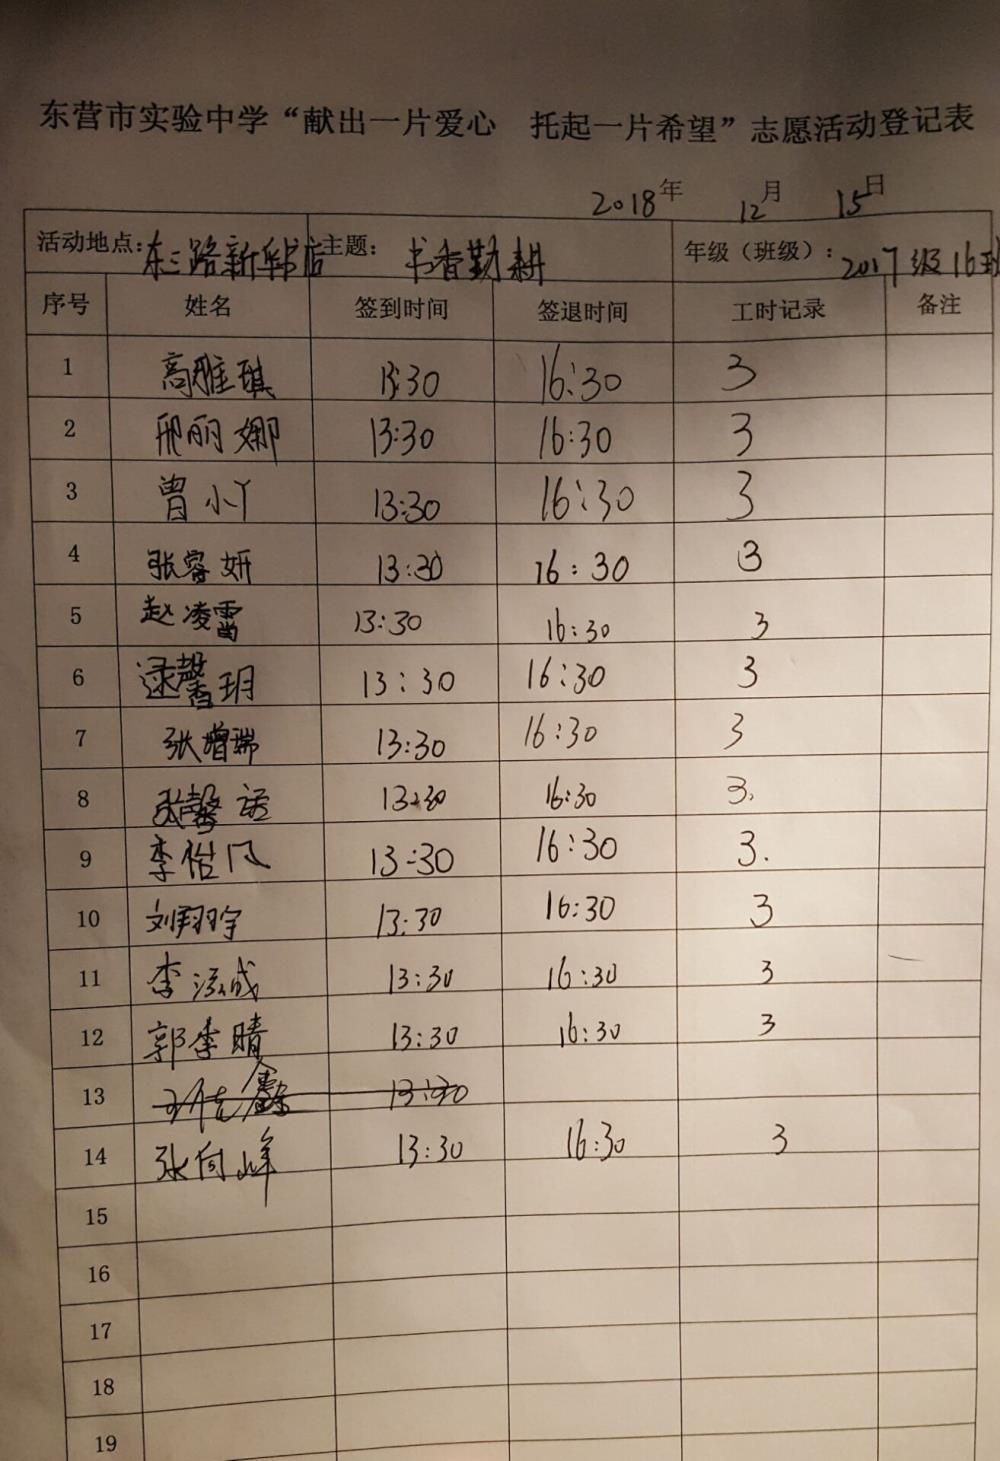 东营市实验中学“献出一片爱心 托起一片希望”志愿活动登记表
2018年 12月 15日
活动地点：东三路新华书店 主题：书香勤耕 年级（班级）：2017级16班
序号 姓名 签到时间 签退时间 工时记录 备注
1 高雅琪 13:30 16:30 3
2 邢丽娜 13:30 16:30 3
3 曾小丫 13:30 16:30 3
4 张睿妍 13:30 16:30 3
5 赵凌雷 13:30 16:30 3
6 逯馨玥 13:30 16:30 3
7 张增瑞 13:30 16:30 3
8 张馨 13:30 16:30 3
9 李 13:30 16:30 3
10 刘翔宇 13:30 16:30 3
11 李 成 13:30 16:30 3
12 郭李晴 13:30 16:30 3
13 13:30
14 张向峰 13:30 16:30 3
15
16
17
18
19